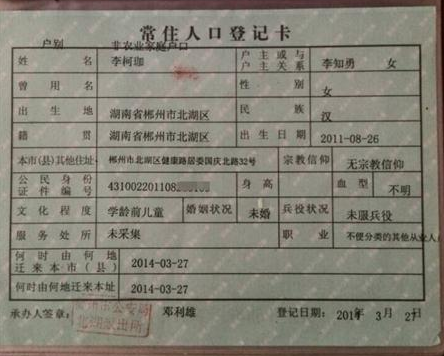 常住人口登记卡
户别 非农业家庭户口
姓名 李柯珈 户主或与户主关系 李知勇 女
曾用名 性别 女
出生地 湖南省郴州市北湖区 民族 汉
籍贯 湖南省郴州市北湖区 出生日期 2011-08-26
本市(县)其他住址 郴州市北湖区健康路居委国庆北路32号 宗教信仰 无宗教信仰
公民身份证件编号 431002201108 身高 血型 不明
文化程度 学龄前儿童 婚姻状况 未婚 兵役状况 未服兵役
服务处所 未采集 职业 不便分类的其他从业人
何时由何地迁来本市(县) 2014-03-27
何时由何地迁来本址 2014-03-27
承办人签章: 邓利雄 登记日期: 2014年 3月 27日